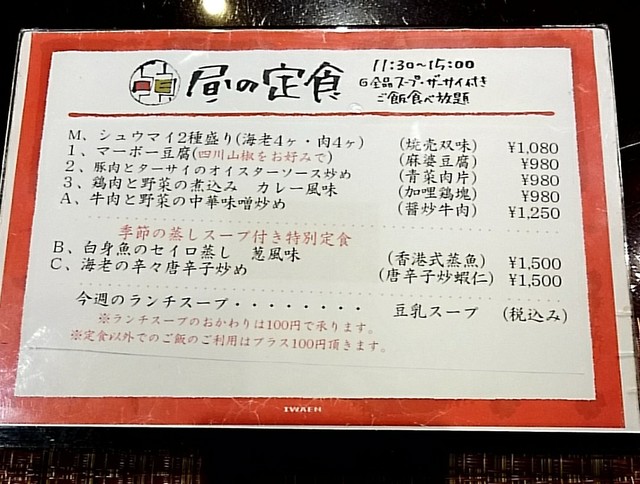 昼の定食
11:30〜15:00
◎全品スープ・ザーサイ付き
ご飯食べ放題
M、シュウマイ2種盛り(海老4ヶ・肉4ヶ) (焼売双味) ¥1,080
1、マーボー豆腐(四川山椒をお好みで) (麻婆豆腐) ¥980
2、豚肉とターサイのオイスターソース炒め (青菜肉片) ¥980
3、鶏肉と野菜の煮込み カレー風味 (加哩鶏塊) ¥980
A、牛肉と野菜の中華味噌炒め (醤炒牛肉) ¥1,250
季節の蒸しスープ付き特別定食
B、白身魚のセイロ蒸し 葱風味 (香港式蒸魚) ¥1,500
C、海老の辛々唐辛子炒め (唐辛子炒蝦仁) ¥1,500
今週のランチスープ・・・・・・・・ 豆乳スープ (税込み)
※ランチスープのおかわりは100円で承ります。
※定食以外でのご飯のご利用はプラス100円頂きます。
IWAEN